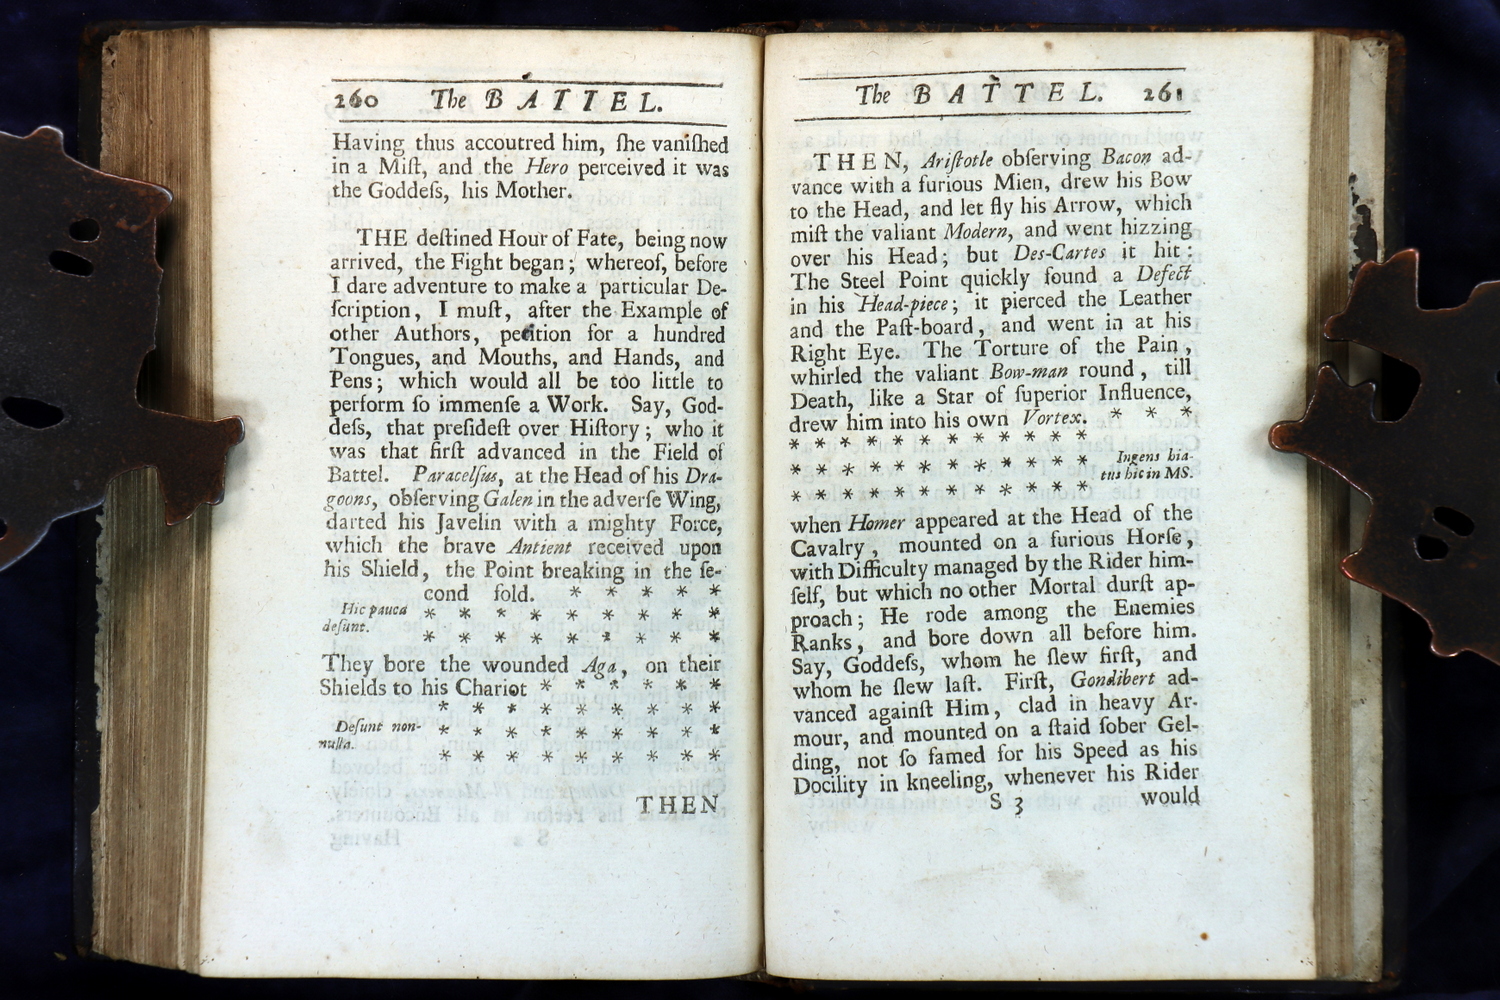 260 The BATTEL.
Having thus accoutred him, ſhe vaniſhed
in a Miſt, and the Hero perceived it was
the Goddeſs, his Mother.
THE deſtined Hour of Fate, being now
arrived, the Fight began; whereof, before
I dare adventure to make a particular De-
ſcription, I muſt, after the Example of
other Authors, petition for a hundred
Tongues, and Mouths, and Hands, and
Pens; which would all be too little to
perform ſo immenſe a Work. Say, God-
deſs, that preſideſt over Hiſtory; who it
was that firſt advanced in the Field of
Battel. Paracelſus, at the Head of his Dra-
goons, obſerving Galen in the adverſe Wing,
darted his Javelin with a mighty Force,
which the brave Antient received upon
his Shield, the Point breaking in the ſe-
cond fold. * * * * *
Hic pauca * * * * * * * * *
deſunt.
* * * * * * * * *
They bore the wounded Aga, on their
Shields to his Chariot * * * * * *
* * * * * * * * *
Deſunt non- * * * * * * * *
nulla.
* * * * * * * * *
THEN
The BATTEL. 261
THEN, Ariſtotle obſerving Bacon ad-
vance with a furious Mien, drew his Bow
to the Head, and let fly his Arrow, which
miſt the valiant Modern, and went hizzing
over his Head; but Des-Cartes it hit:
The Steel Point quickly found a Defect
in his Head-piece; it pierced the Leather
and the Paſt-board, and went in at his
Right Eye. The Torture of the Pain,
whirled the valiant Bow-man round, till
Death, like a Star of ſuperior Influence,
drew him into his own Vortex. * * *
* * * * * * * * * * * *
* * * * * * * * * * * * Ingens hia-
tus hic in MS.
* * * * * * * * * * * *
when Homer appeared at the Head of the
Cavalry, mounted on a furious Horſe,
with Difficulty managed by the Rider him-
ſelf, but which no other Mortal durſt ap-
proach; He rode among the Enemies
Ranks, and bore down all before him.
Say, Goddeſs, whom he ſlew firſt, and
whom he ſlew laſt. Firſt, Gondibert ad-
vanced againſt Him, clad in heavy Ar-
mour, and mounted on a ſtaid ſober Gel-
ding, not ſo famed for his Speed as his
Docility in kneeling, whenever his Rider
S 3 would